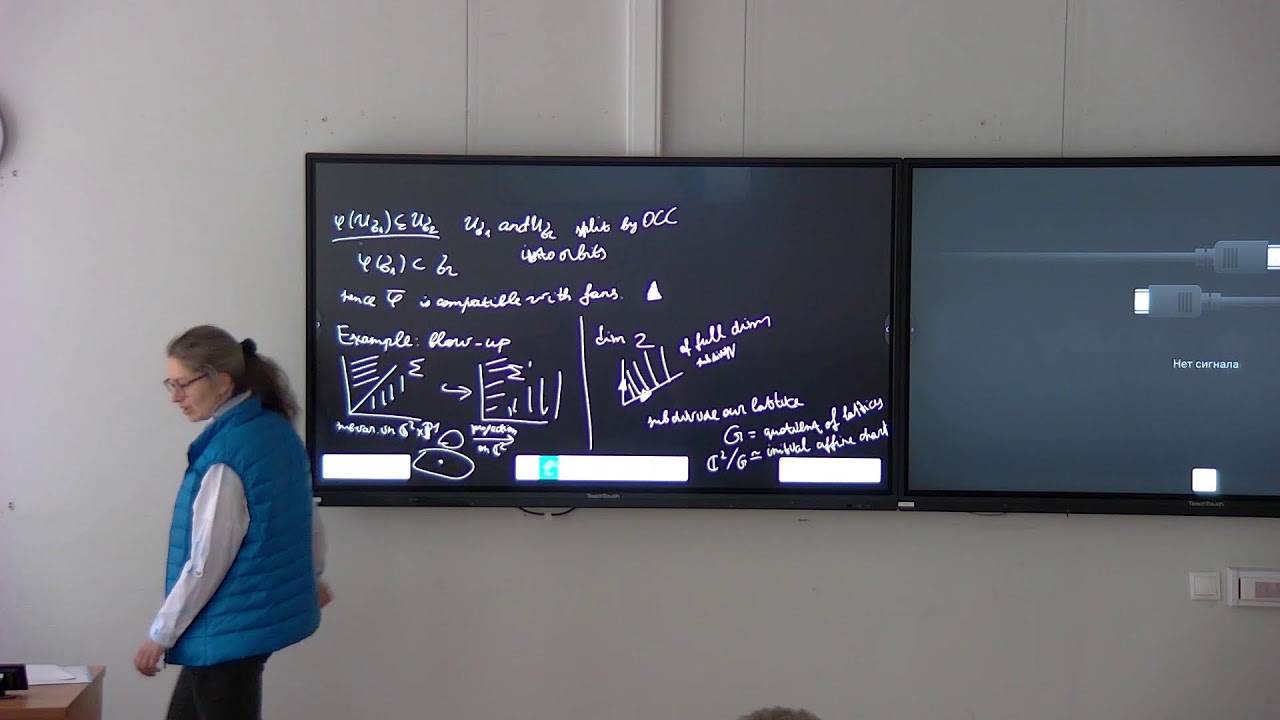 φ(U_σ₁) ⊆ U_σ₂ U_σ₁ and U_σ₂ split by OCC
into orbits
φ(σ₁) ⊂ σ₂
hence φ̅ is compatible with fans. ▲
Example: Blow-up
Σ
Σ'
subvar. in ℂ²×ℙ¹
projection
on ℂ²
dim 2
of full dim
subdivide our lattice
G = quotient of lattices
ℂ²/G ≅ initial affine chart
TeachTouch
Нет сигнала
TeachTouch